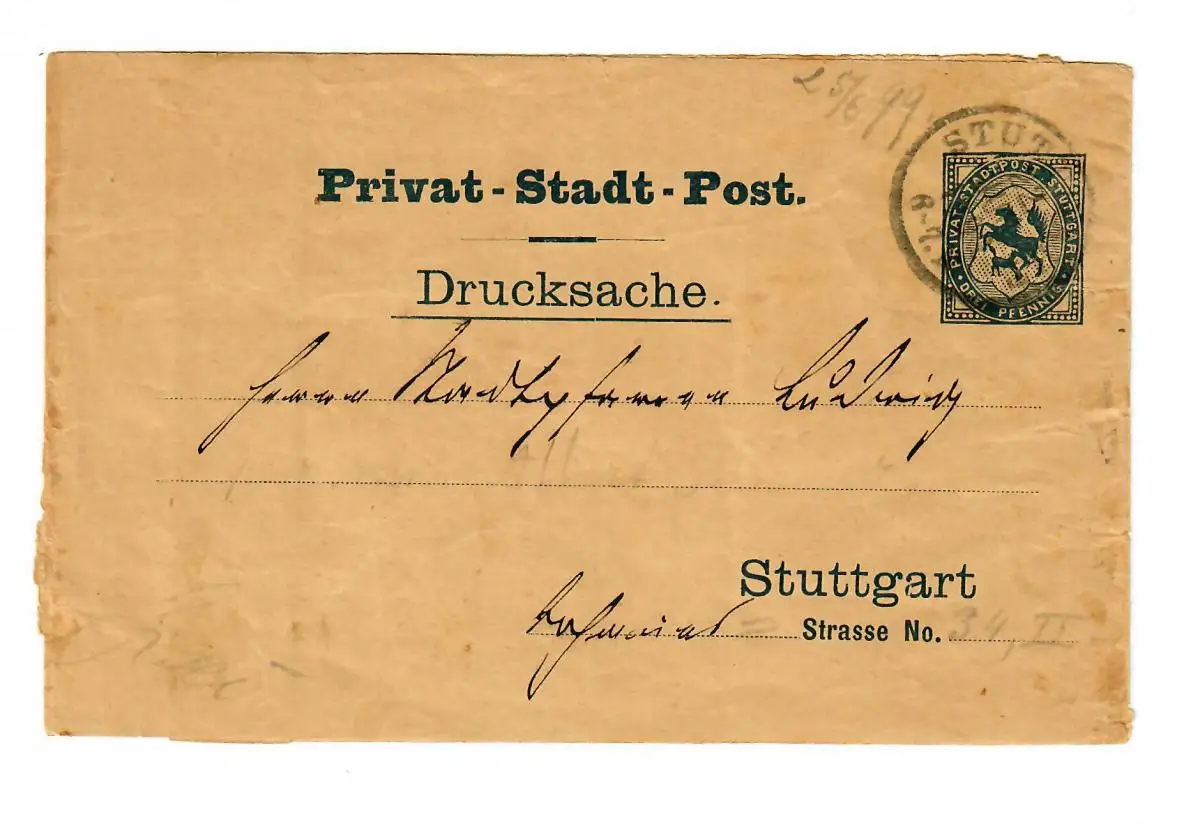 25/6 99
STUT
PRIVAT-STADTPOST STUTTGART
DREI PFENNIG
Privat - Stadt - Post.
Drucksache.
Herrn Stadtpfarrer Ludwig
Stuttgart
Strasse No. 34, II